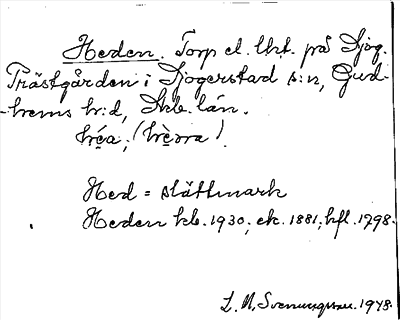 Heden. Torp el. lht. på Sjög.
Prästgården i Sjogerstad s:n, Gud-
-hems hr:d, Skb. län.
hę́a, (hę̀ora).
Hed = slättmark
Heden kb. 1930, ek. 1881, hfl. 1798.
L. N. Svenungsson. 1948.